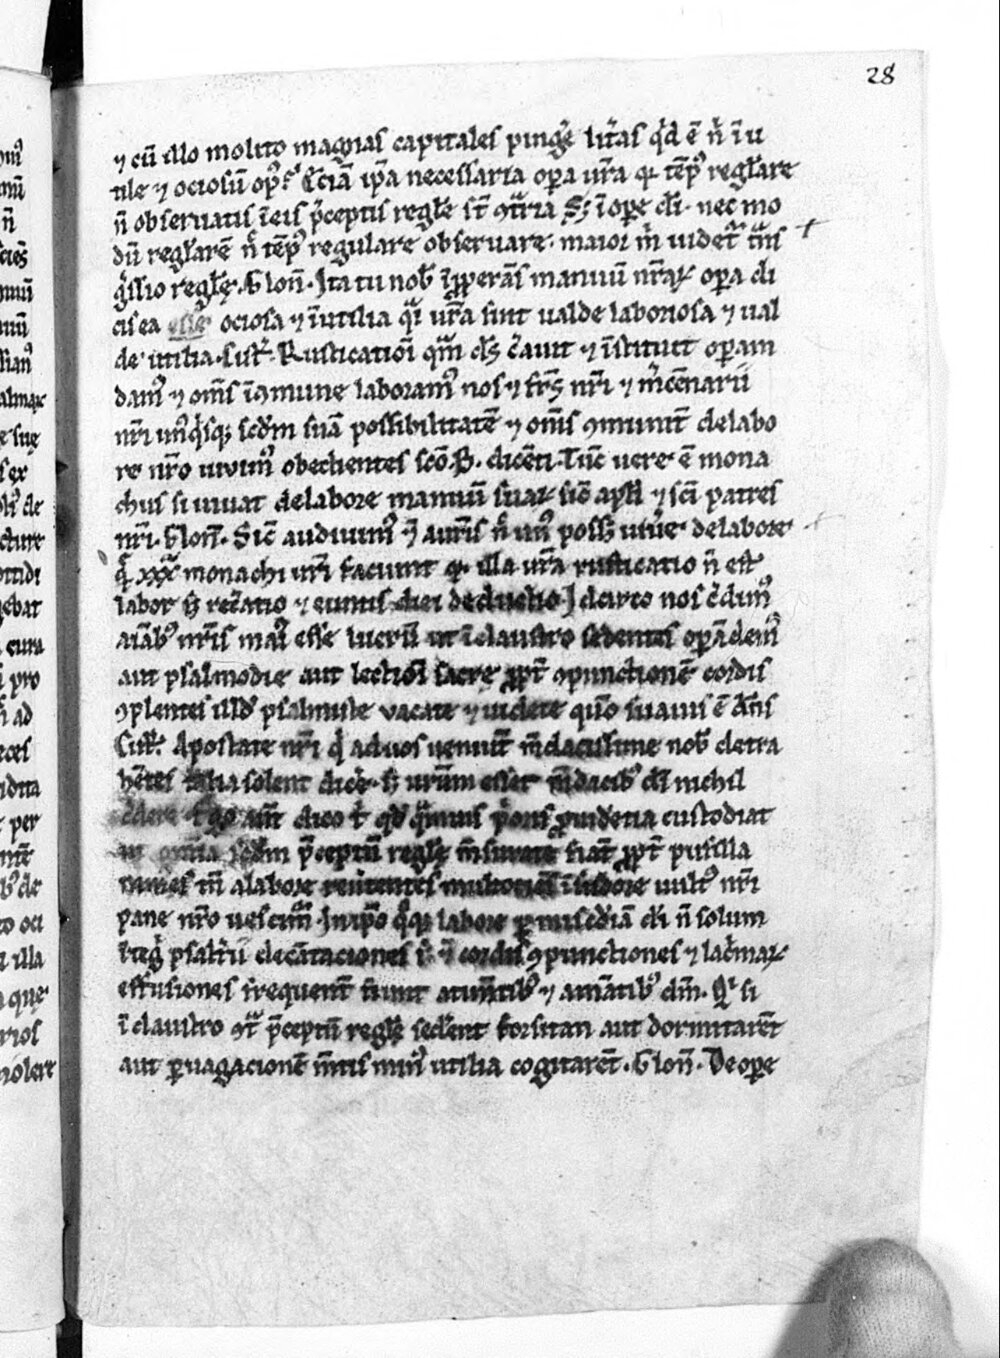 28
⁊ cū illo molito magnas capitales pinge᷒ lr̄as qd̓ ē n̄ īu
tile ⁊ ociosū opꝰ? Cciā ip̄a necessaria opa ur̄a qꝛ tēpꝰ regl̄are
n̄ obseruatis ī eis p̄ceptis regl̄e st̄ ꝯtͣria Sꝫ ī ope dī· nec mo
dū regl̄arē n̄ tēpꝰ regulare obseruare· maior m̄ uidet᷒ tͣns
gͥssio regl̄ę. Clon̄· Ita tu nob̄ īꝓperās manuū nr̄aꝝ opa di
cis ea esse ociosa ⁊ īutilia qͣ ur̄a sint ualde laboriosa ⁊ ual
de utilia· Cist̄· Rusticatioī qͣm ds̄ c̓auit ⁊ īstituit operam
damꝰ ⁊ om̄s ī ꝯmune laboramꝰ nos ⁊ fr̄s nr̄i ⁊ m̓cēnarii
nr̄i unꝰqͥsqꝫ scd̄m suā possibilitatē ⁊ om̄s ꝯmunit̓ de labo
re nr̄o uiuimꝰ obedientes scō· B· dicēti· Tūc uere ē mona
chus si uiuat de labore manuū suaꝝ sic̄ apl̄i ⁊ sc̄i patres
nr̄i· Clon̄· Sic̄ audiuimꝰ ⁊ī auris n̄ unꝰ possꝫ uiue᷒ de labore
qͣ xxx monachi ur̄i faciunt qꝛ illa ur̄a rusticatio n̄ est
labor sꝫ rec̓atio ⁊ eunus diei deductio· Idcirco nos c̓dimꝰ
aīabꝰ nr̄is maiꝰ esse lucrū ut ī claustro sedentes opā demꝰ
aut psalmodie aut lectioī sacrę ꝓpt̓ ꝯpunctionē cordis
ꝯplentes illd̓ psalmiste vacate ⁊ uidete qm̄o suauis ē dn̄s
Cist̄· Apostate nr̄i qͥ ad uos ueniūt m̄dacissime nob̄ detra
hētes talia solent dice᷒· sꝫ utinam esset m̄dacibꝰ dī nichil
aūt dico t̓ qd̓ qͣmuis pͥoris ꝓuidētia custodiat
omnia scd̄m p̄ceptū regl̄e m̄surate fiāt ꝓpt̓ pusilla
nimes tn̄ a labore reuertentes multociēs ī sudore uultꝰ nr̄i
pane nr̄o uescimur· In ip̄o qͦqꝫ labore ꝑ misc̓diā dī n̄ solum
psalt̓ii decātaciones sꝫ ⁊ī cordis ꝯpunctiones ⁊ lac̓maꝝ
effusiones frequent̓ fiunt a timētibꝰ ⁊ amātibꝰ dm̄· Qd̓ si
ī claustro ꝯtͣ p̄ceptū regl̄e sedēent forsitan aut dormitarēt
aut ꝑuagacionē m̄tis minꝰ utilia cogitarēt· Clon̄· De ope